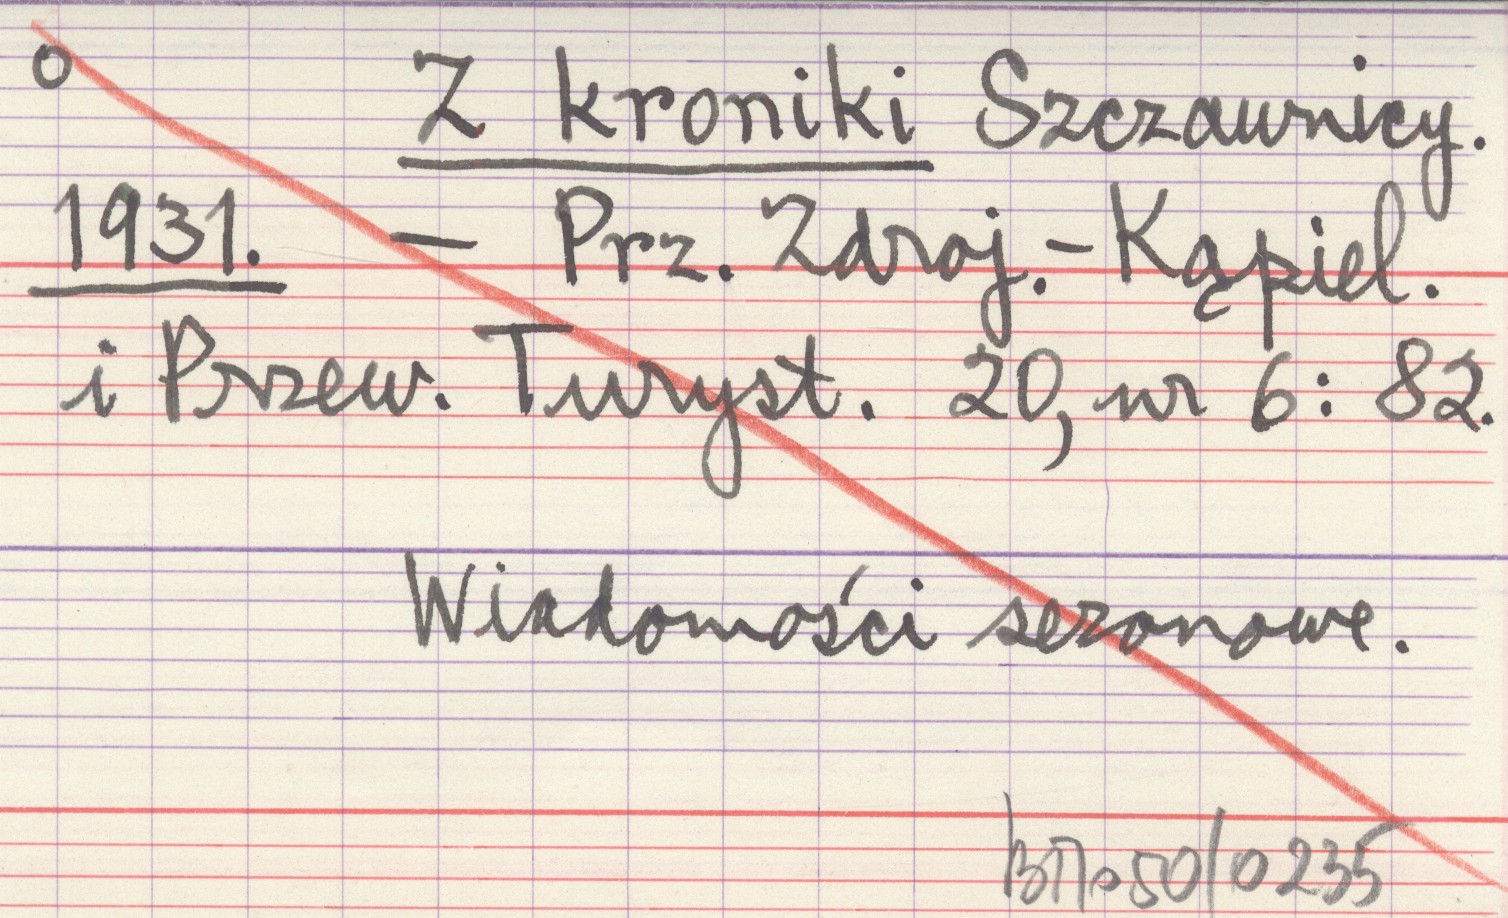 o Z kroniki Szczawnicy.
1931. – Prz. Zdroj.-Kąpiel.
i Przew. Turyst. 20, nr 6: 82.
Wiadomości sezonowe.
50/0235